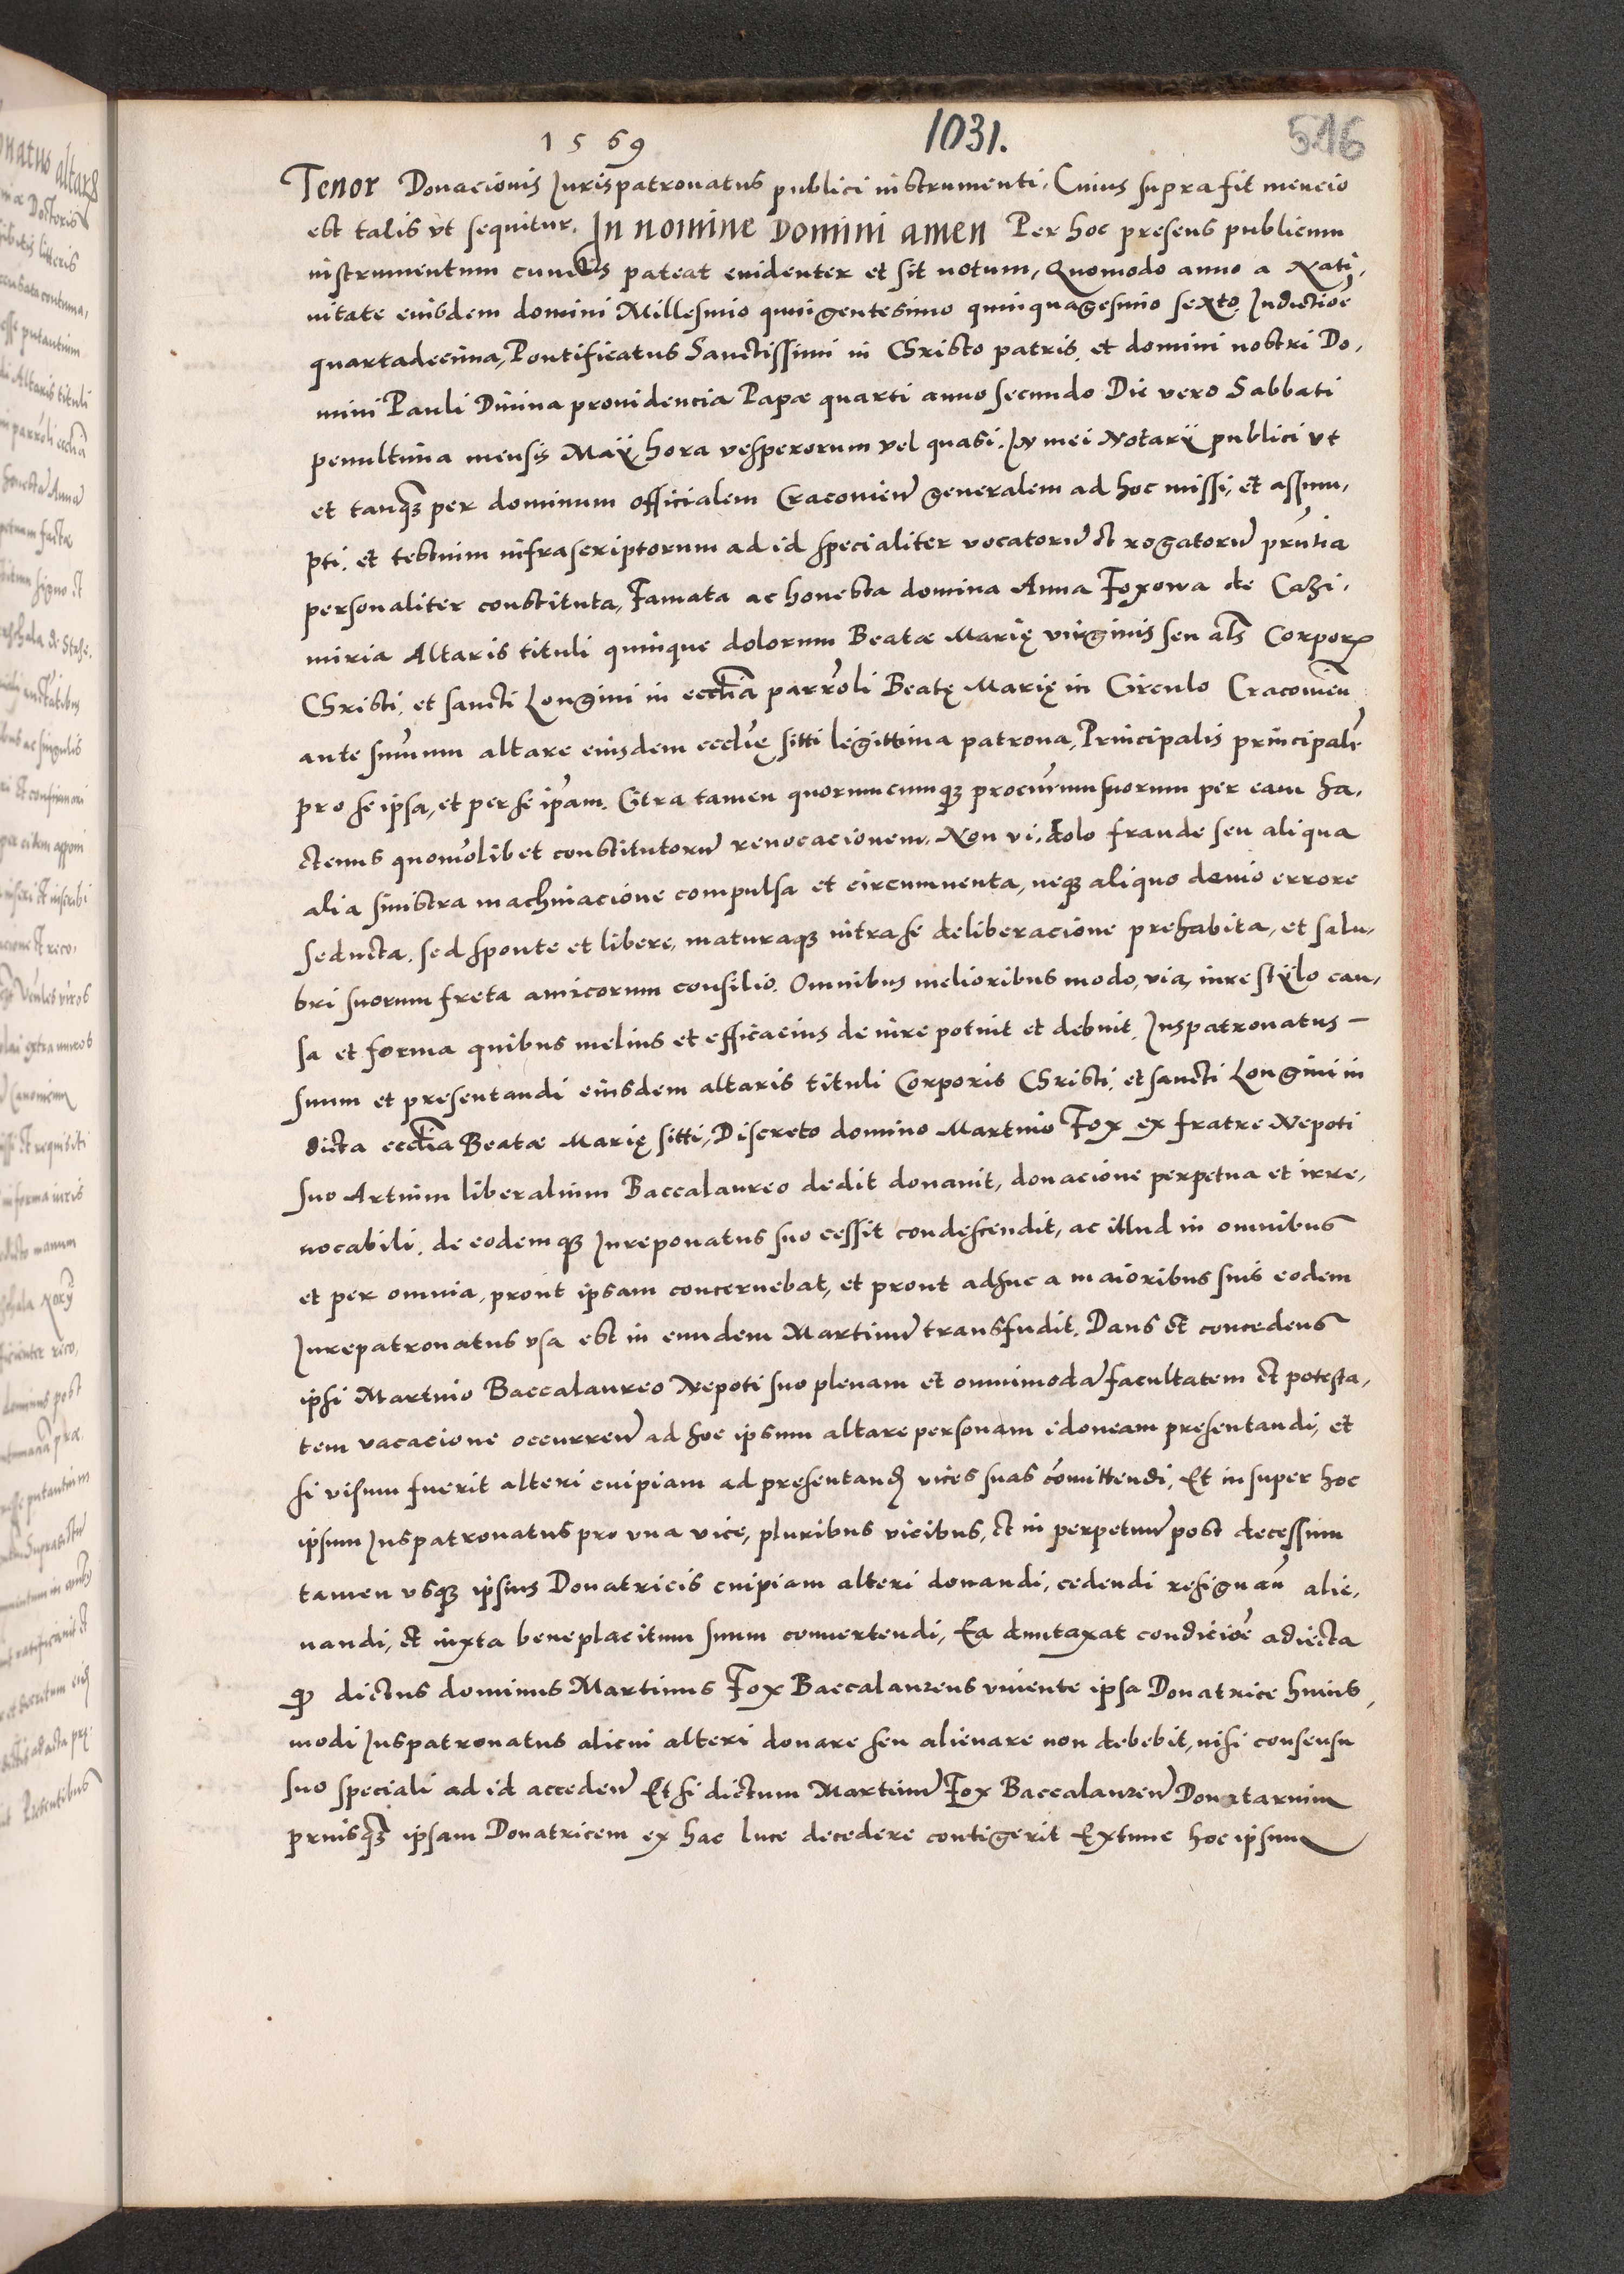 1569 1031. 516
Tenor Donacionis Jurispatronatus publici instrumenti, Cuius supra fit mencio
est talis vt sequitur. In nomine Domini amen Per hoc presens publicum
instrumentum cunctis pateat euidenter et sit notum, Quomodo anno a Nati,
uitate eiusdem domini Millesimo quingentesimo quinquagesimo sexto, Indictioē
quartadecima, Pontificatus Sanctissimi in Christo patris, et domini nostri Do,
mini Pauli Diuina prouidencia Papæ quarti anno secundo Die vero Sabbati
penultima mensis Maÿ, hora vesperorum vel quasi. In mei Notarÿ publici vt
et tanq̃ per dominum officialem Cracovień generalem ad hoc missi, et assum,
pti, et testium infrascriptorum ad id specialiter vocatorū et rogatorū prn̄tia
personaliter constituta, Famata ac honesta domina Anna Foxowa de Cazi,
miria Altaris tituli quinque dolorum Beatæ Marię virginis seu al̄s Corporis
Christi, et sancti Longini in eccl̄ia parrōli Beatę Marię in Circulo Cracovień
ante sum̄um altare eiusdem eccl̄ię sitti legittima patrona, Principalis principalr̄
pro se ipsa, et per se ip̄am. Citra tamen quorumcumqꝫ procur̄um suorum per eam ha,
ctenus quomōlibet constitutorū reuocacionem. Non vi, dolo fraude seu aliqua
alia sinistra machinacione compulsa et circumuenta, neqꝫ aliquo deuio errore
seducta, sed sponte et libere, maturaqꝫ intra se deliberacione prehabita, et salu,
bri suorum freta amicorum consilio. Omnibus melioribus modo, via, iure stÿlo cau,
sa et forma quibus melius et efficacius de iure potuit et debuit, Juspatronatus –
suum et presentandi eiusdem altaris tituli Corporis Christi, et sancti Longini in
dicta eccl̄ia Beatæ Marię sitti, Discreto domino Martino Fox ex fratre Nepoti
suo Artium liberalium Baccalaureo dedit donauit, donacione perpetua et irre,
uocabili, de eodemqꝫ Jureponatus suo cessit condescendit, ac illud in omnibus
et per omnia, prout ipsam concernebat, et prout adhuc a maioribus suis eodem
Jurepatronatus vsa est in eundem Martinū transfudit. Dans et concedens
ipsi Martino Baccalaureo Nepoti suo plenam et omnimodā facultatem et potesta,
tem vacacione occurreń ad hoc ipsum altare personam idoneam presentandi, et
si visum fuerit alteri cuipiam ad presentanđ vices suas com̄ittendi, Et insuper hoc
ipsum Juspatronatus pro vna vice, pluribus vicibus, et in perpetuū post decessum
tamen vsqꝫ ipsius Donatricis cuipiam alteri donandi, cedendi resignań alie,
nandi, et iuxta beneplacitum suum conuertendi, Ea duntaxat condicioē adiecta
qɖ dictus dominus Martinus Fox Baccalaureus viuente ipsa Donatrice huius,
modi Juspatronatus alicui alteri donare seu alienare non debebit, nisi consensu
suo speciali ad id accedeń Et si dictum Martinū Fox Baccalaureū Donatarium
priusq̃ ipsam Donatricem ex hac luce decedere contigerit Extunc hoc ipsum